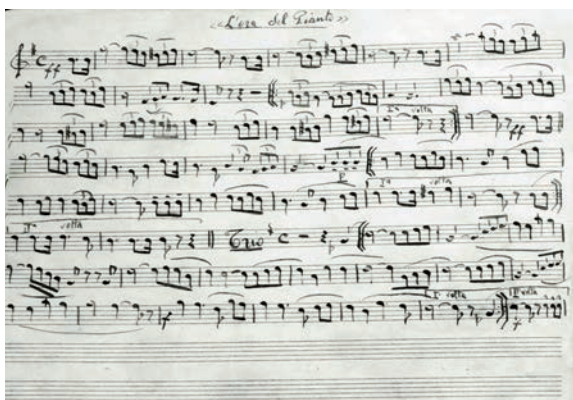 «L'ora del Pianto»
C ff
Iª volta ff
P
Iª volta
IIª volta Trio C
f Iª volta IIª volta f